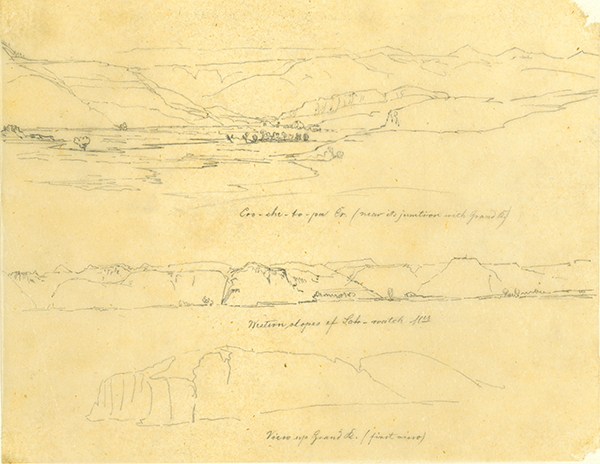 Coo-che-to-pa Cr. (near its junction with Grand R)
Western slopes of Sah-watch Mts
View up Grand R. (first view)